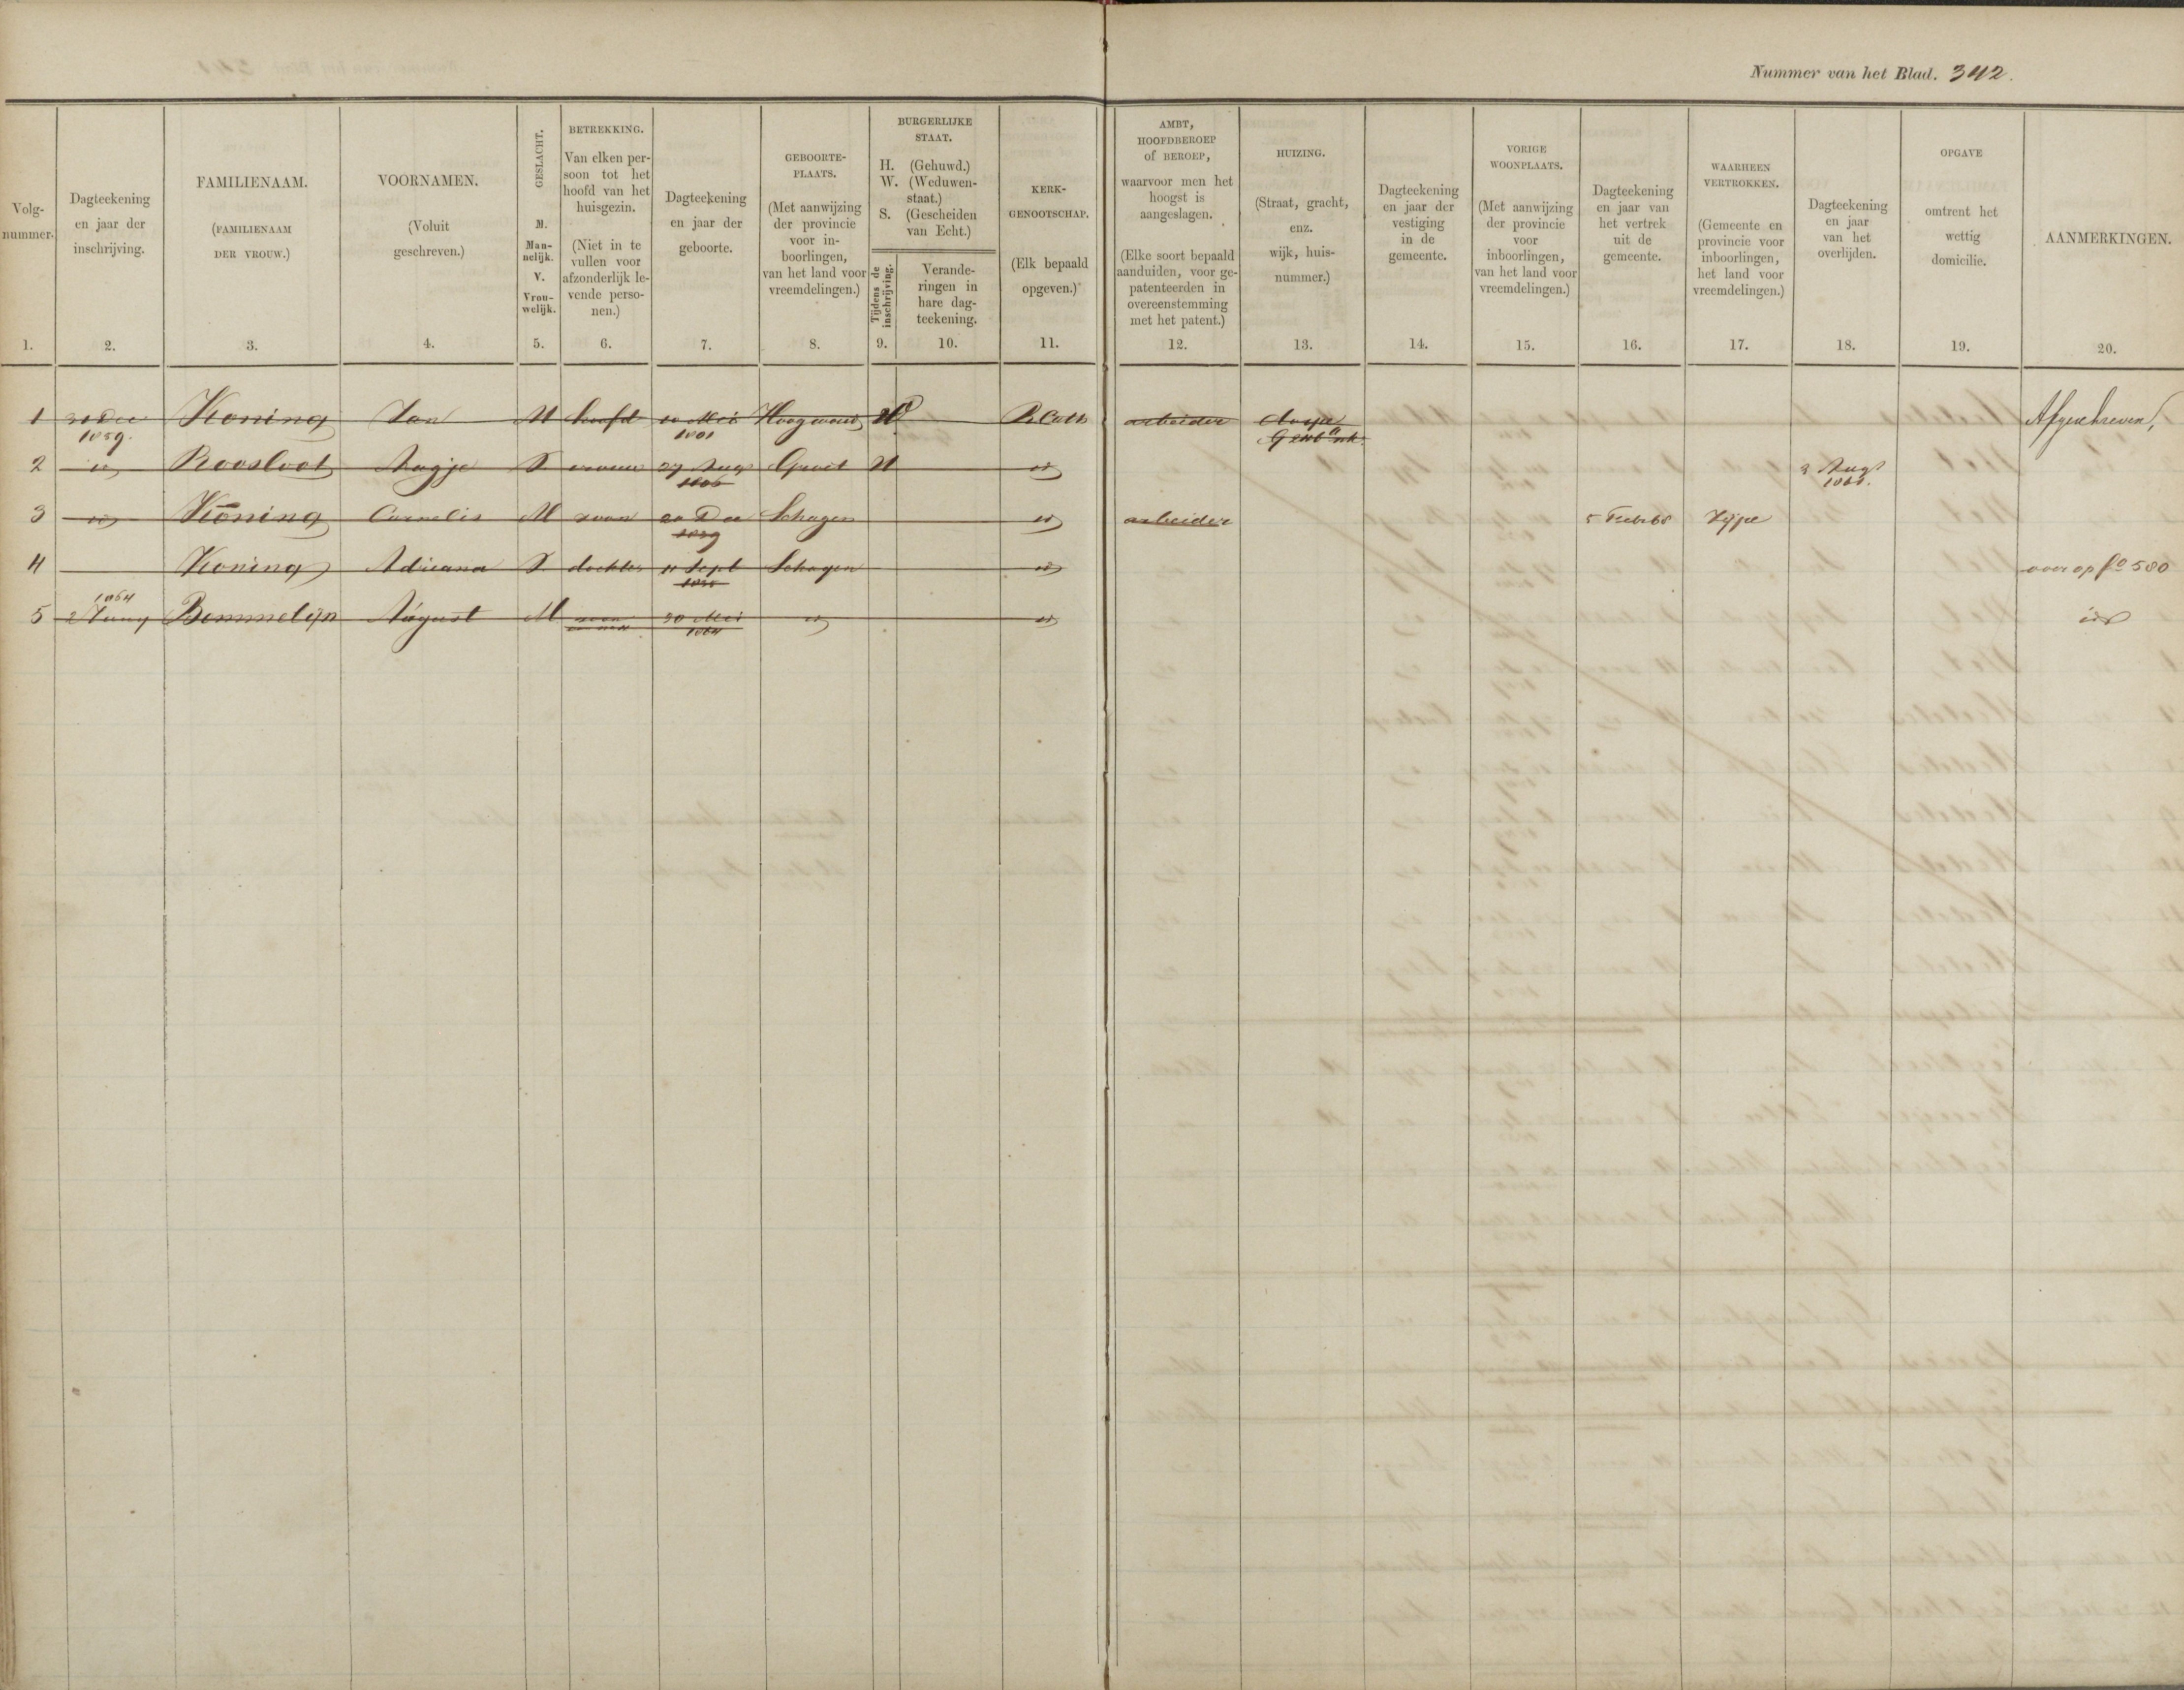 Nummer van het Blad. 342.
Volg-
nummer.
1.
Dagteekening
en jaar der
inschrijving.
2.
FAMILIENAAM.
(FAMILIENAAM
DER VROUW.)
3.
VOORNAMEN.
(Voluit
geschreven.)
4.
GESLACHT.
M.
Man-
nelijk.
V.
Vrou-
welijk.
5.
BETREKKING.
Van elken per-
soon tot het
hoofd van het
huisgezin.
(Niet in te
vullen voor
afzonderlijk le-
vende perso-
nen.)
6.
Dagteekening
en jaar der
geboorte.
7.
GEBOORTE-
PLAATS.
(Met aanwijzing
der provincie
voor in-
boorlingen,
van het land voor
vreemdelingen.)
8.
BURGERLIJKE
STAAT.
H. (Gehuwd.)
W. (Weduwen-
staat.)
S. (Gescheiden
van Echt.)
Tijdens de
inschrijving.
9.
Verande-
ringen in
hare dag-
teekening.
10.
KERK-
GENOOTSCHAP.
(Elk bepaald
opgeven.)
11.
AMBT,
HOOFDBEROEP
of BEROEP,
waarvoor men het
hoogst is
aangeslagen.
(Elke soort bepaald
aanduiden, voor ge-
patenteerden in
overeenstemming
met het patent.)
12.
HUIZING.
(Straat, gracht,
enz.
wijk, huis-
nummer.)
13.
Dagteekening
en jaar der
vestiging
in de
gemeente.
14.
VORIGE
WOONPLAATS.
(Met aanwijzing
der provincie
voor
inboorlingen,
van het land voor
vreemdelingen.)
15.
Dagteekening
en jaar van
het vertrek
uit de
gemeente.
16.
WAARHEEN
VERTROKKEN.
(Gemeente en
provincie voor
inboorlingen,
het land voor
vreemdelingen.)
17.
Dagteekening
en jaar
van het
overlijden.
18.
OPGAVE
omtrent het
wettig
domicilie.
19.
AANMERKINGEN.
20.
1 31 Dec Koning Jan M hoofd Mei Hoogwoud R Cath arbeider dorp Afgeschreven
1859. 1801
2 id Roosloot Aagje V vrouw 27 Aug H id 3 Aug
3 id Koning Cornelis M zoon 20 Dec Schagen id arbeider 5 Feb 65 Zijpe
1839
4 Koning Adriana V dochter 11 Sept Schagen id over op fo 580
1864
5 2 Juny Bommelijn August M zoon 30 Mei id id id
1864